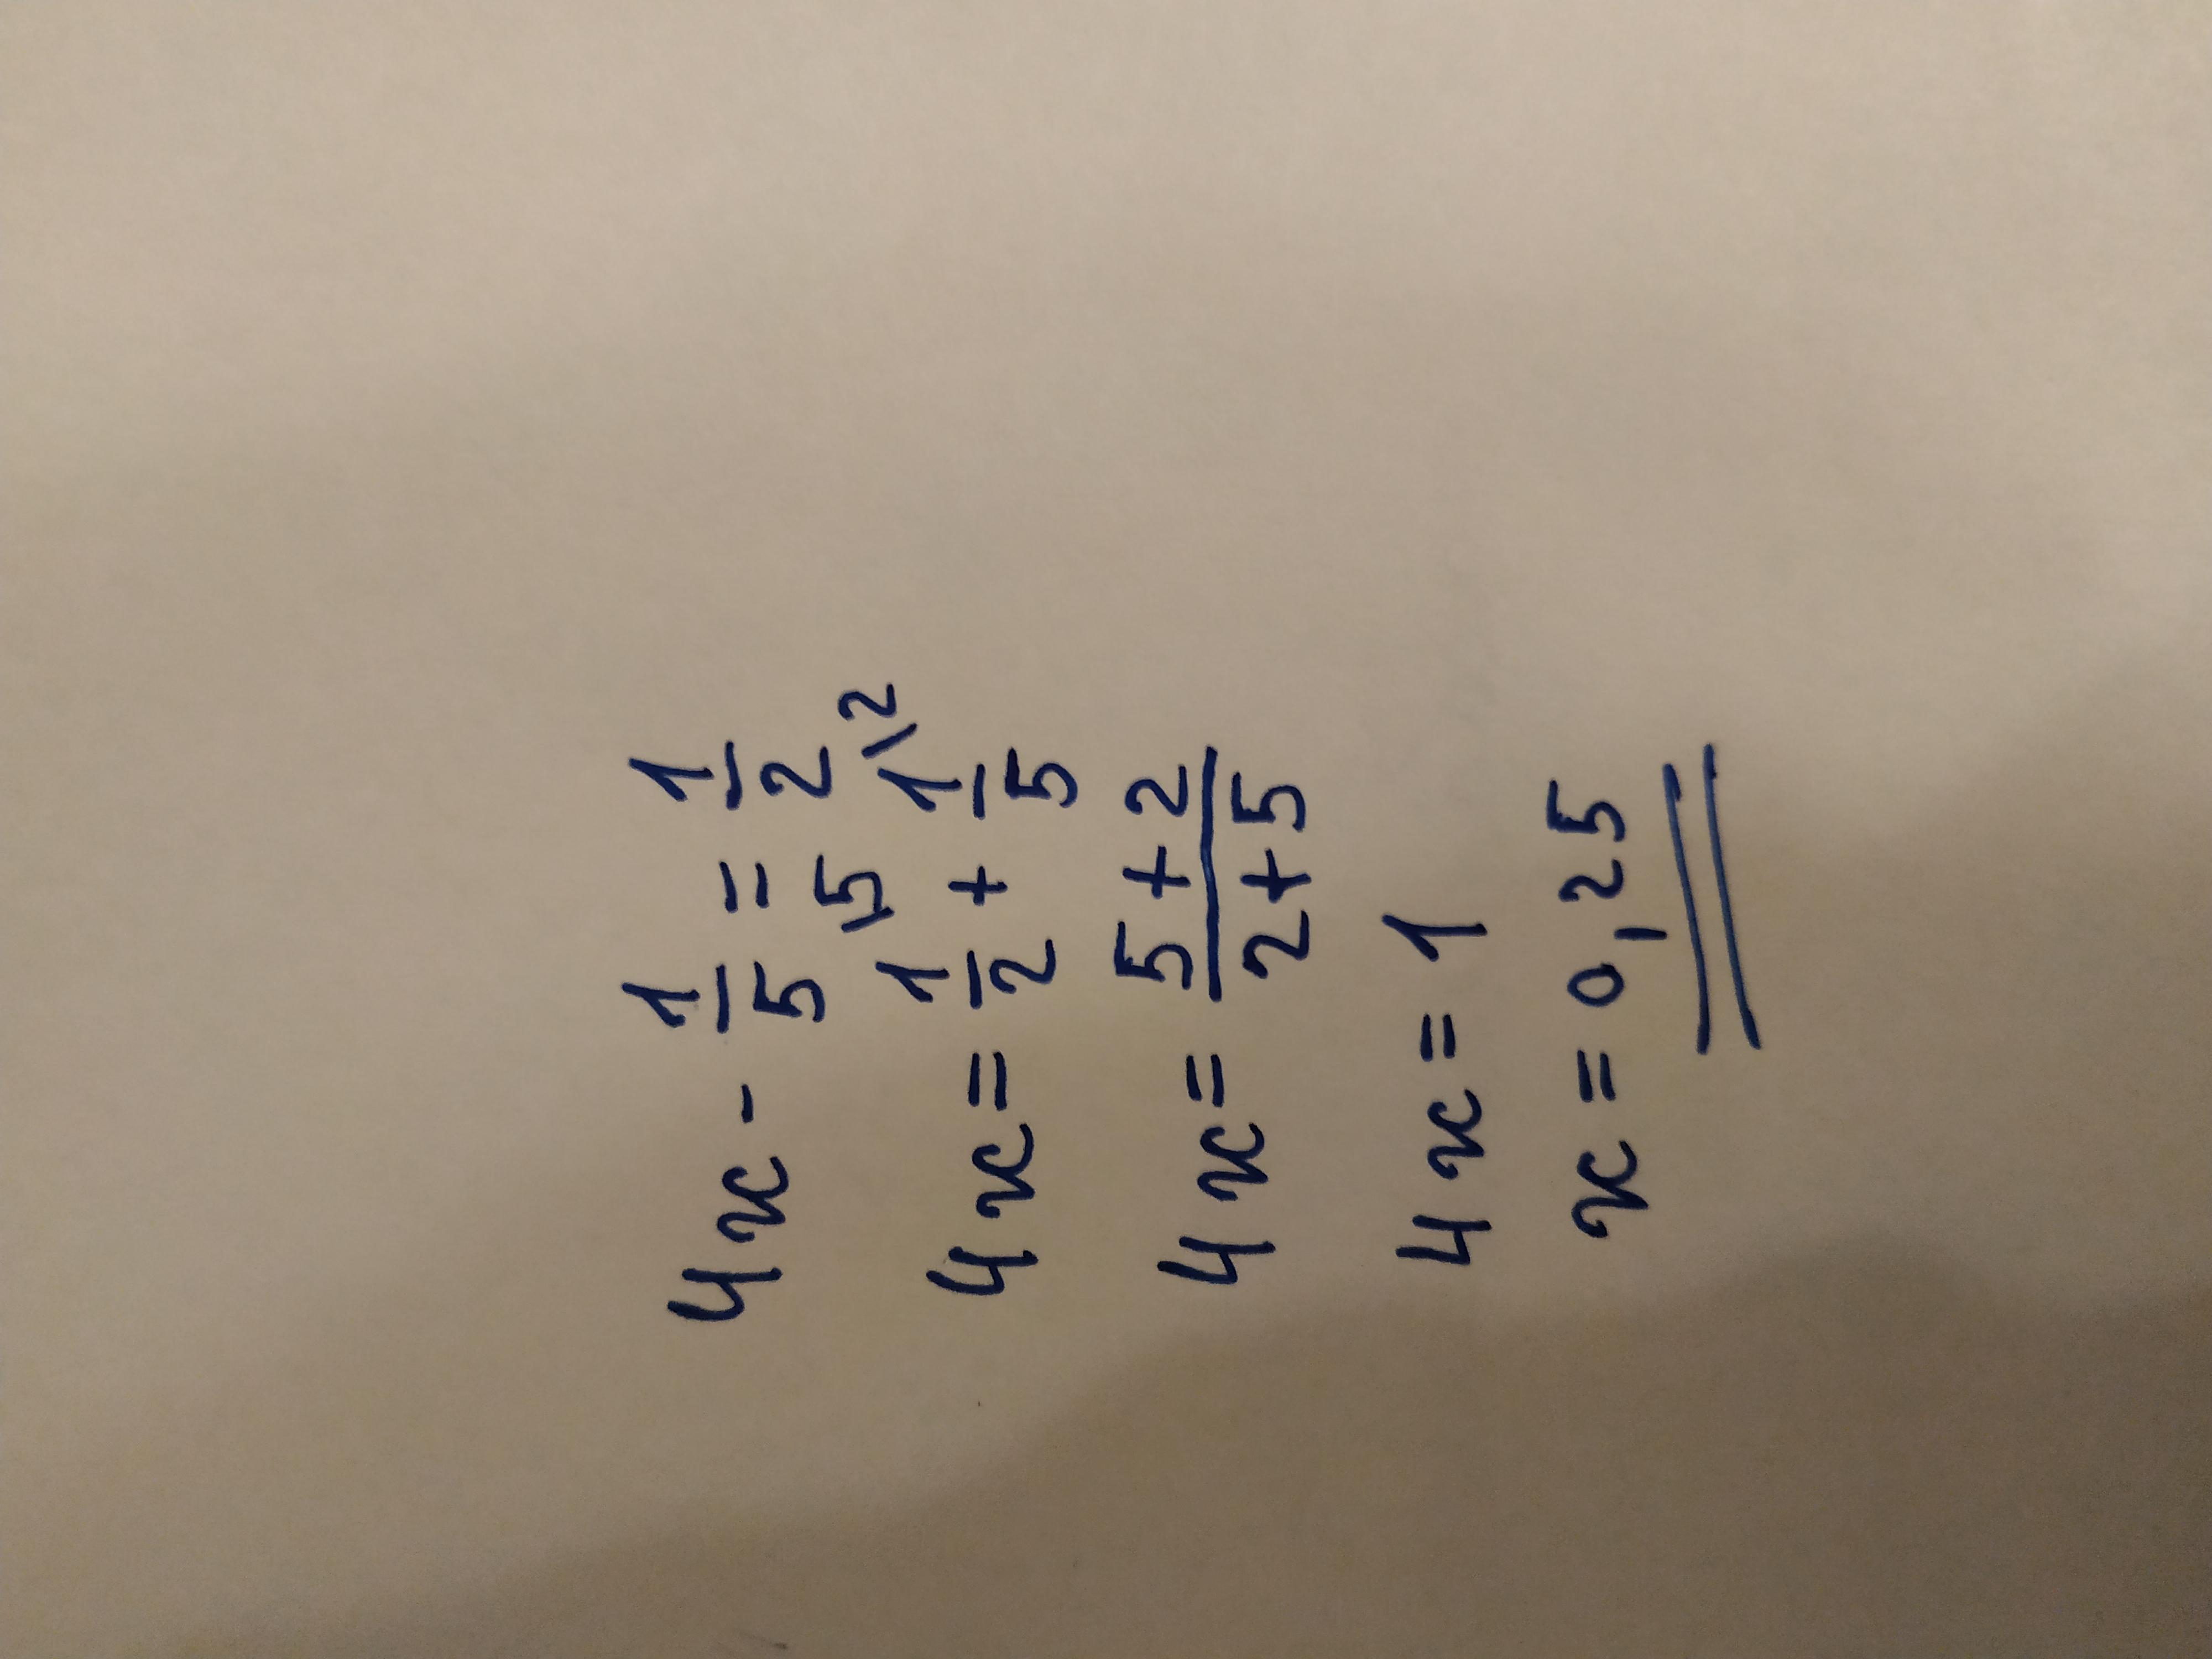 4x - 1/5 = 1/2
4x = 1/2 ⁵⁄ + 1/5 \²
4x = (5+2)/(2+5)
4x = 1
x = 0,25